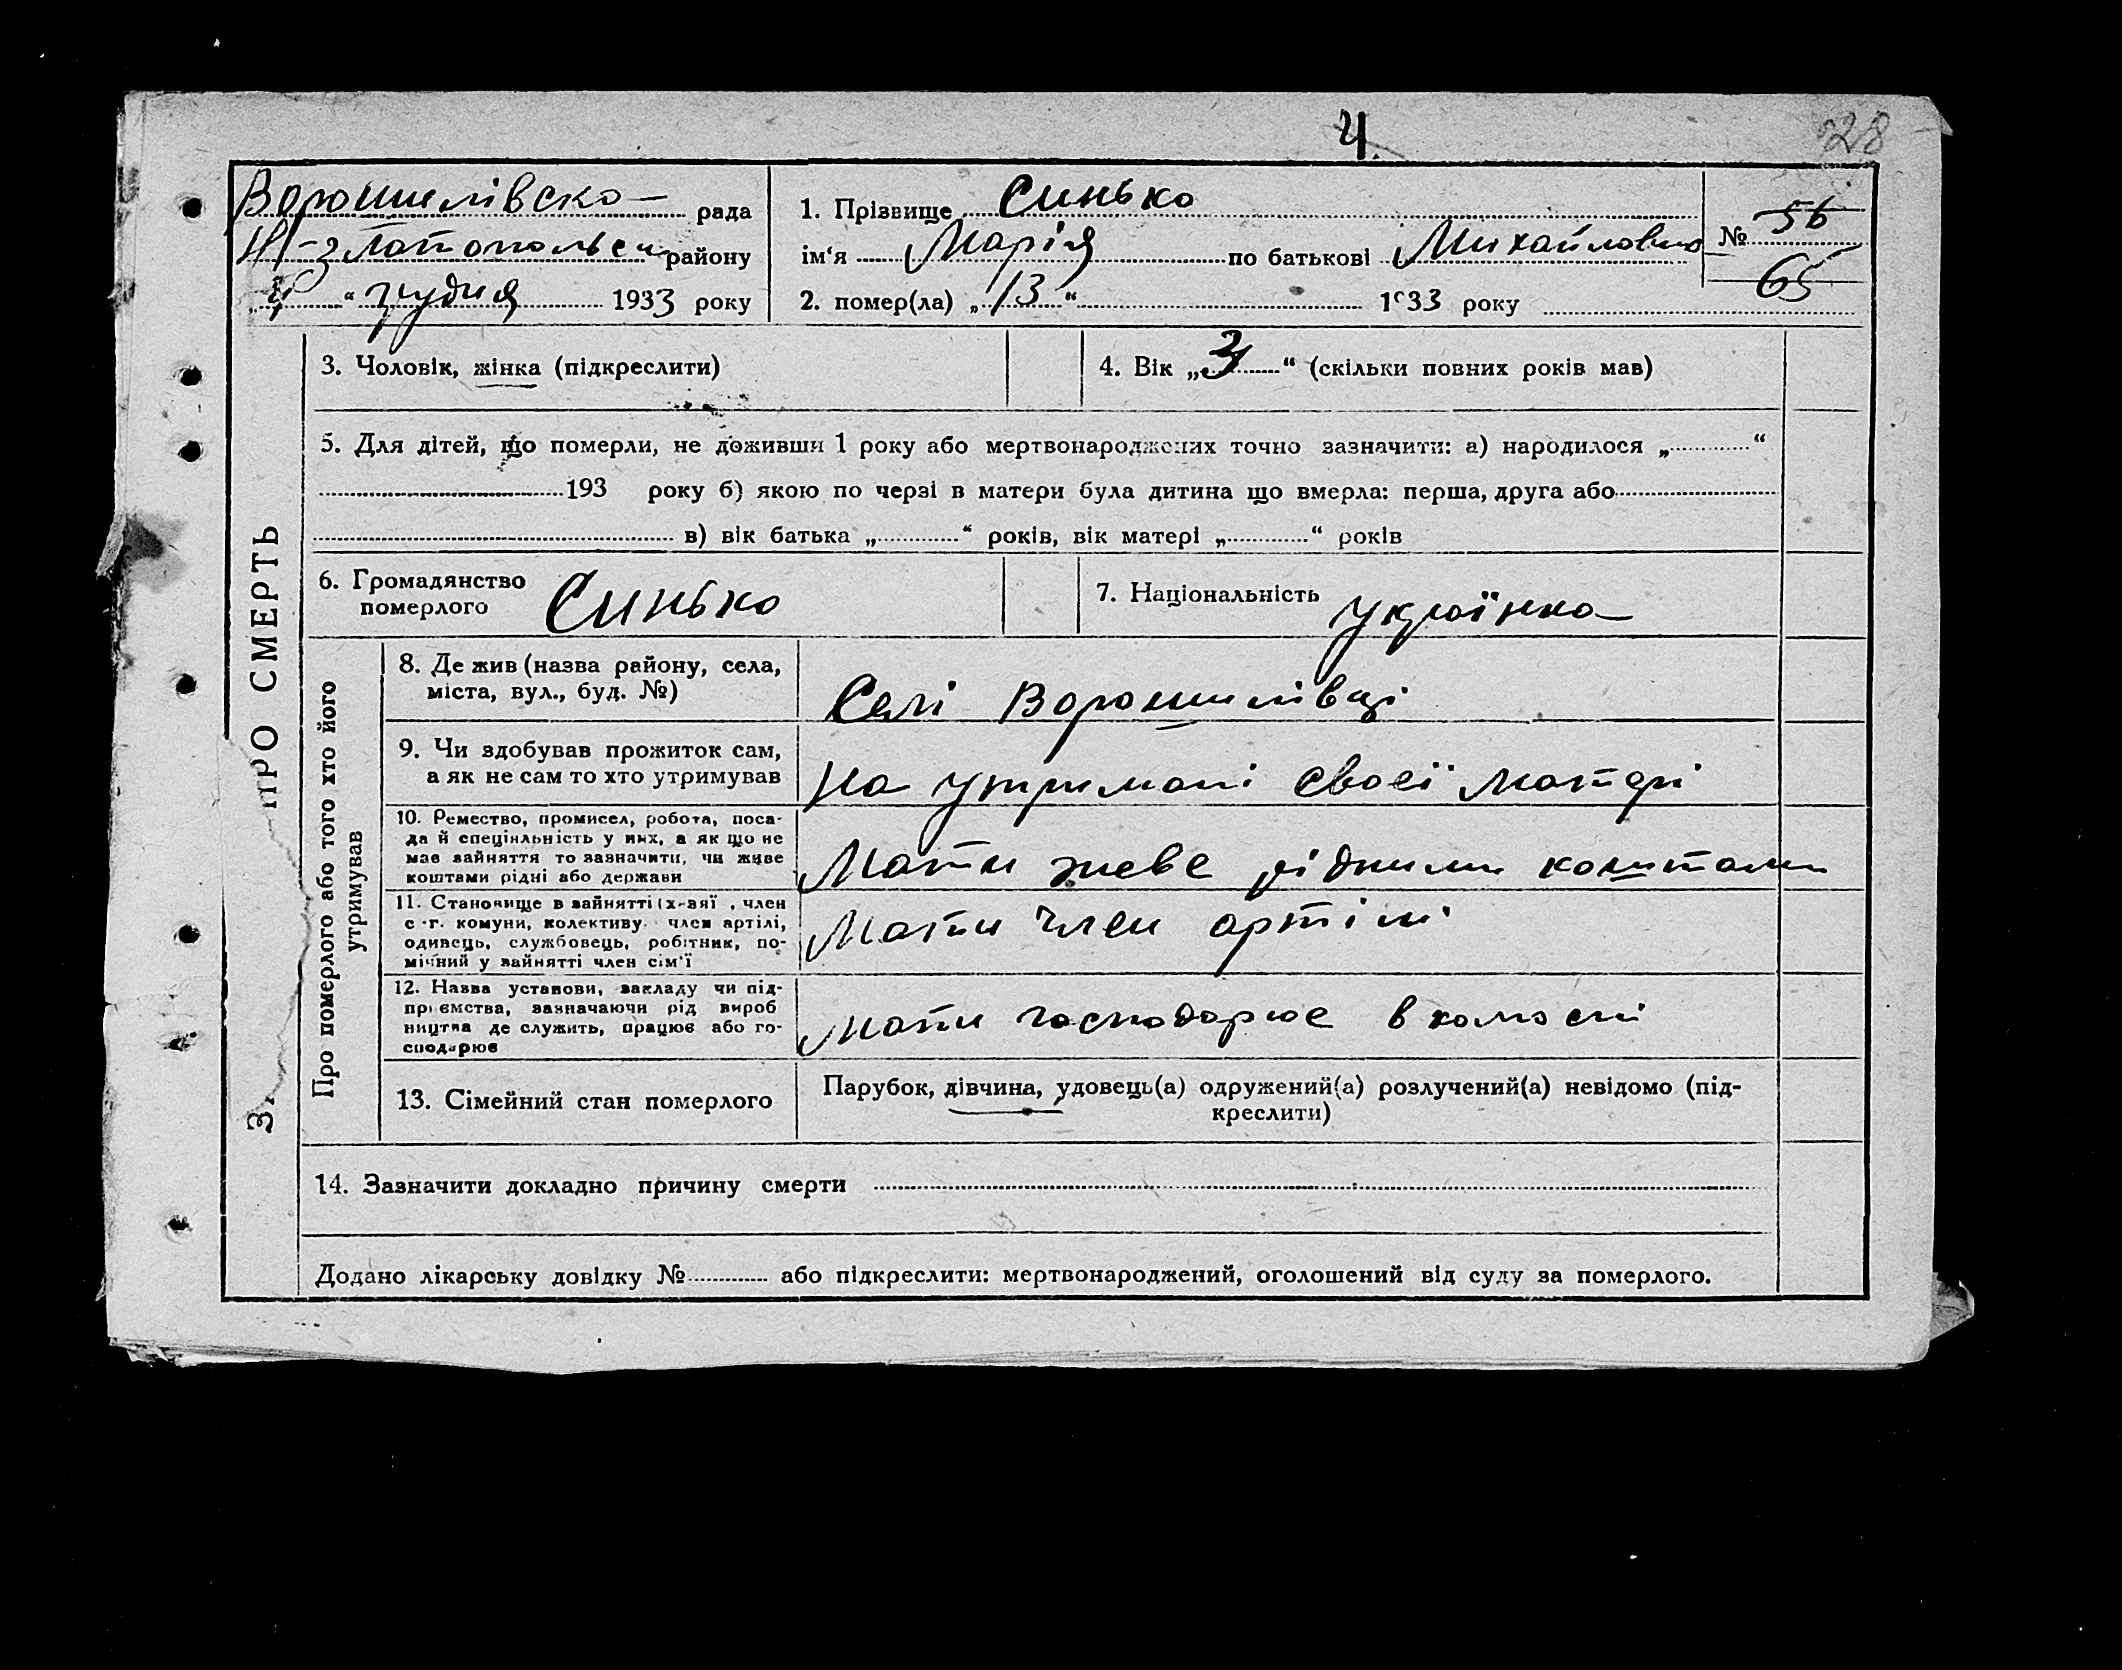 4.
28
Ворошилівско- рада
Н-златопольск району
„4“ грудня 1933 року
1. Прізвище Синько
ім‘я Марія по батькові Михайловна
2. помер(ла) „13“ 1933 року
№ 56
65
3. Чоловік, жінка (підкреслити)
4. Вік „3“ (скільки повних років мав)
5. Для дітей, що померли, не доживши 1 року або мертвонароджених точно зазначити: а) народилося „ “
193 року б) якою по черзі в матери була дитина що вмерла: перша, друга або
в) вік батька „ “ років, вік матері „ “ років
6. Громадянство
померлого Синько
7. Національність українка
ПРО СМЕРТЬ
З
Про померлого або того хто його
утримував
8. Де жив (назва району, села,
міста, вул., буд. №)
Селі Ворошилівці
9. Чи здобував прожиток сам,
а як не сам то хто утримував
на утримані своєї матері
10. Ремество, промисел, робота, поса-
да й спеціяльність у них, а як що не
має зайняття то зазначити, чи живе
коштами рідні або держави
Мати жеве рідними коштами
11. Становище в зайнятті (х-зяї , член
с-г. комуни, колективу. член артілі,
одивець, службовець, робітник, по-
мічний у зайнятті член сім‘ї
Мати член артілі
12. Назва установи, закладу чи під-
приємства, зазначаючи рід вироб
ництва де служить, працює або го-
сподарює
мати господарює в колхозі
13. Сімейний стан померлого
Парубок, дівчина, удовець(а) одружений(а) розлучений(а) невідомо (під-
креслити)
14. Зазначити докладно причину смерти
Додано лікарську довідку № або підкреслити: мертвонароджений, оголошений від суду за померлого.